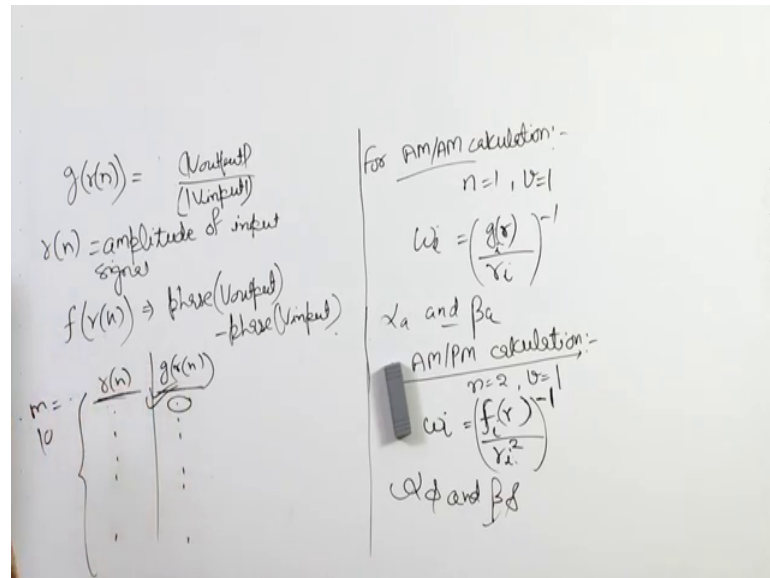 g(r(n)) = |Voutput| / (|Vinput|)
r(n) = amplitude of input
signal
f(r(n)) ⇒ phase(Voutput)
-phase(Vinput)
r(n) | g(r(n))
m =
10
For AM/AM calculation:-
n=1, v=1
wi = (gi(r) / ri)^-1
αa and βa
AM/PM calculation:-
n=2, v=1
wi = (fi(r) / ri^2)^-1
αφ and βφ